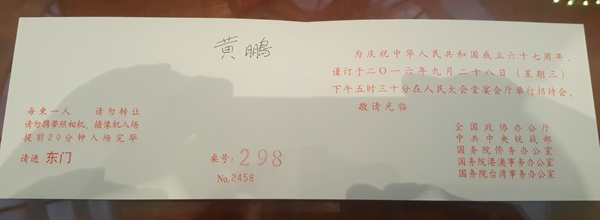 黄鹏
为庆祝中华人民共和国成立六十七周年，
谨订于二〇一六年九月二十八日（星期三）
下午五时三十分在人民大会堂宴会厅举行招待会。
敬请光临
全国政协办公厅
中共中央统战部
国务院侨务办公室
国务院港澳事务办公室
国务院台湾事务办公室
每柬一人 请勿转让
请勿携带照相机、摄像机入场
提前20分钟入场完毕
请进 东门
桌号：298
No.2458